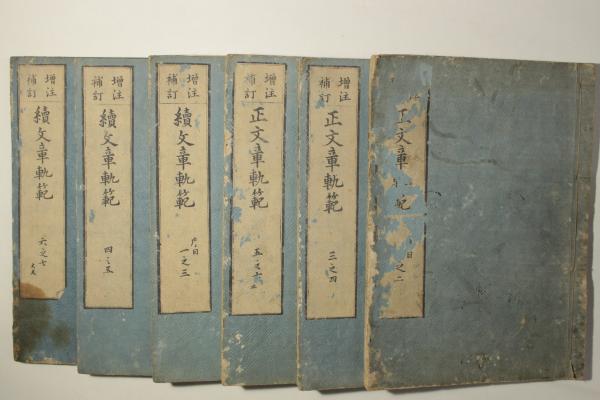 正文章
範
之二
增注
補訂
正文章軌範
三之四
增注
補訂
正文章軌範
五之六
增注
補訂
續文章軌範
一之三
增注
補訂
續文章軌範
四之五
增注
補訂
續文章軌範
六之七